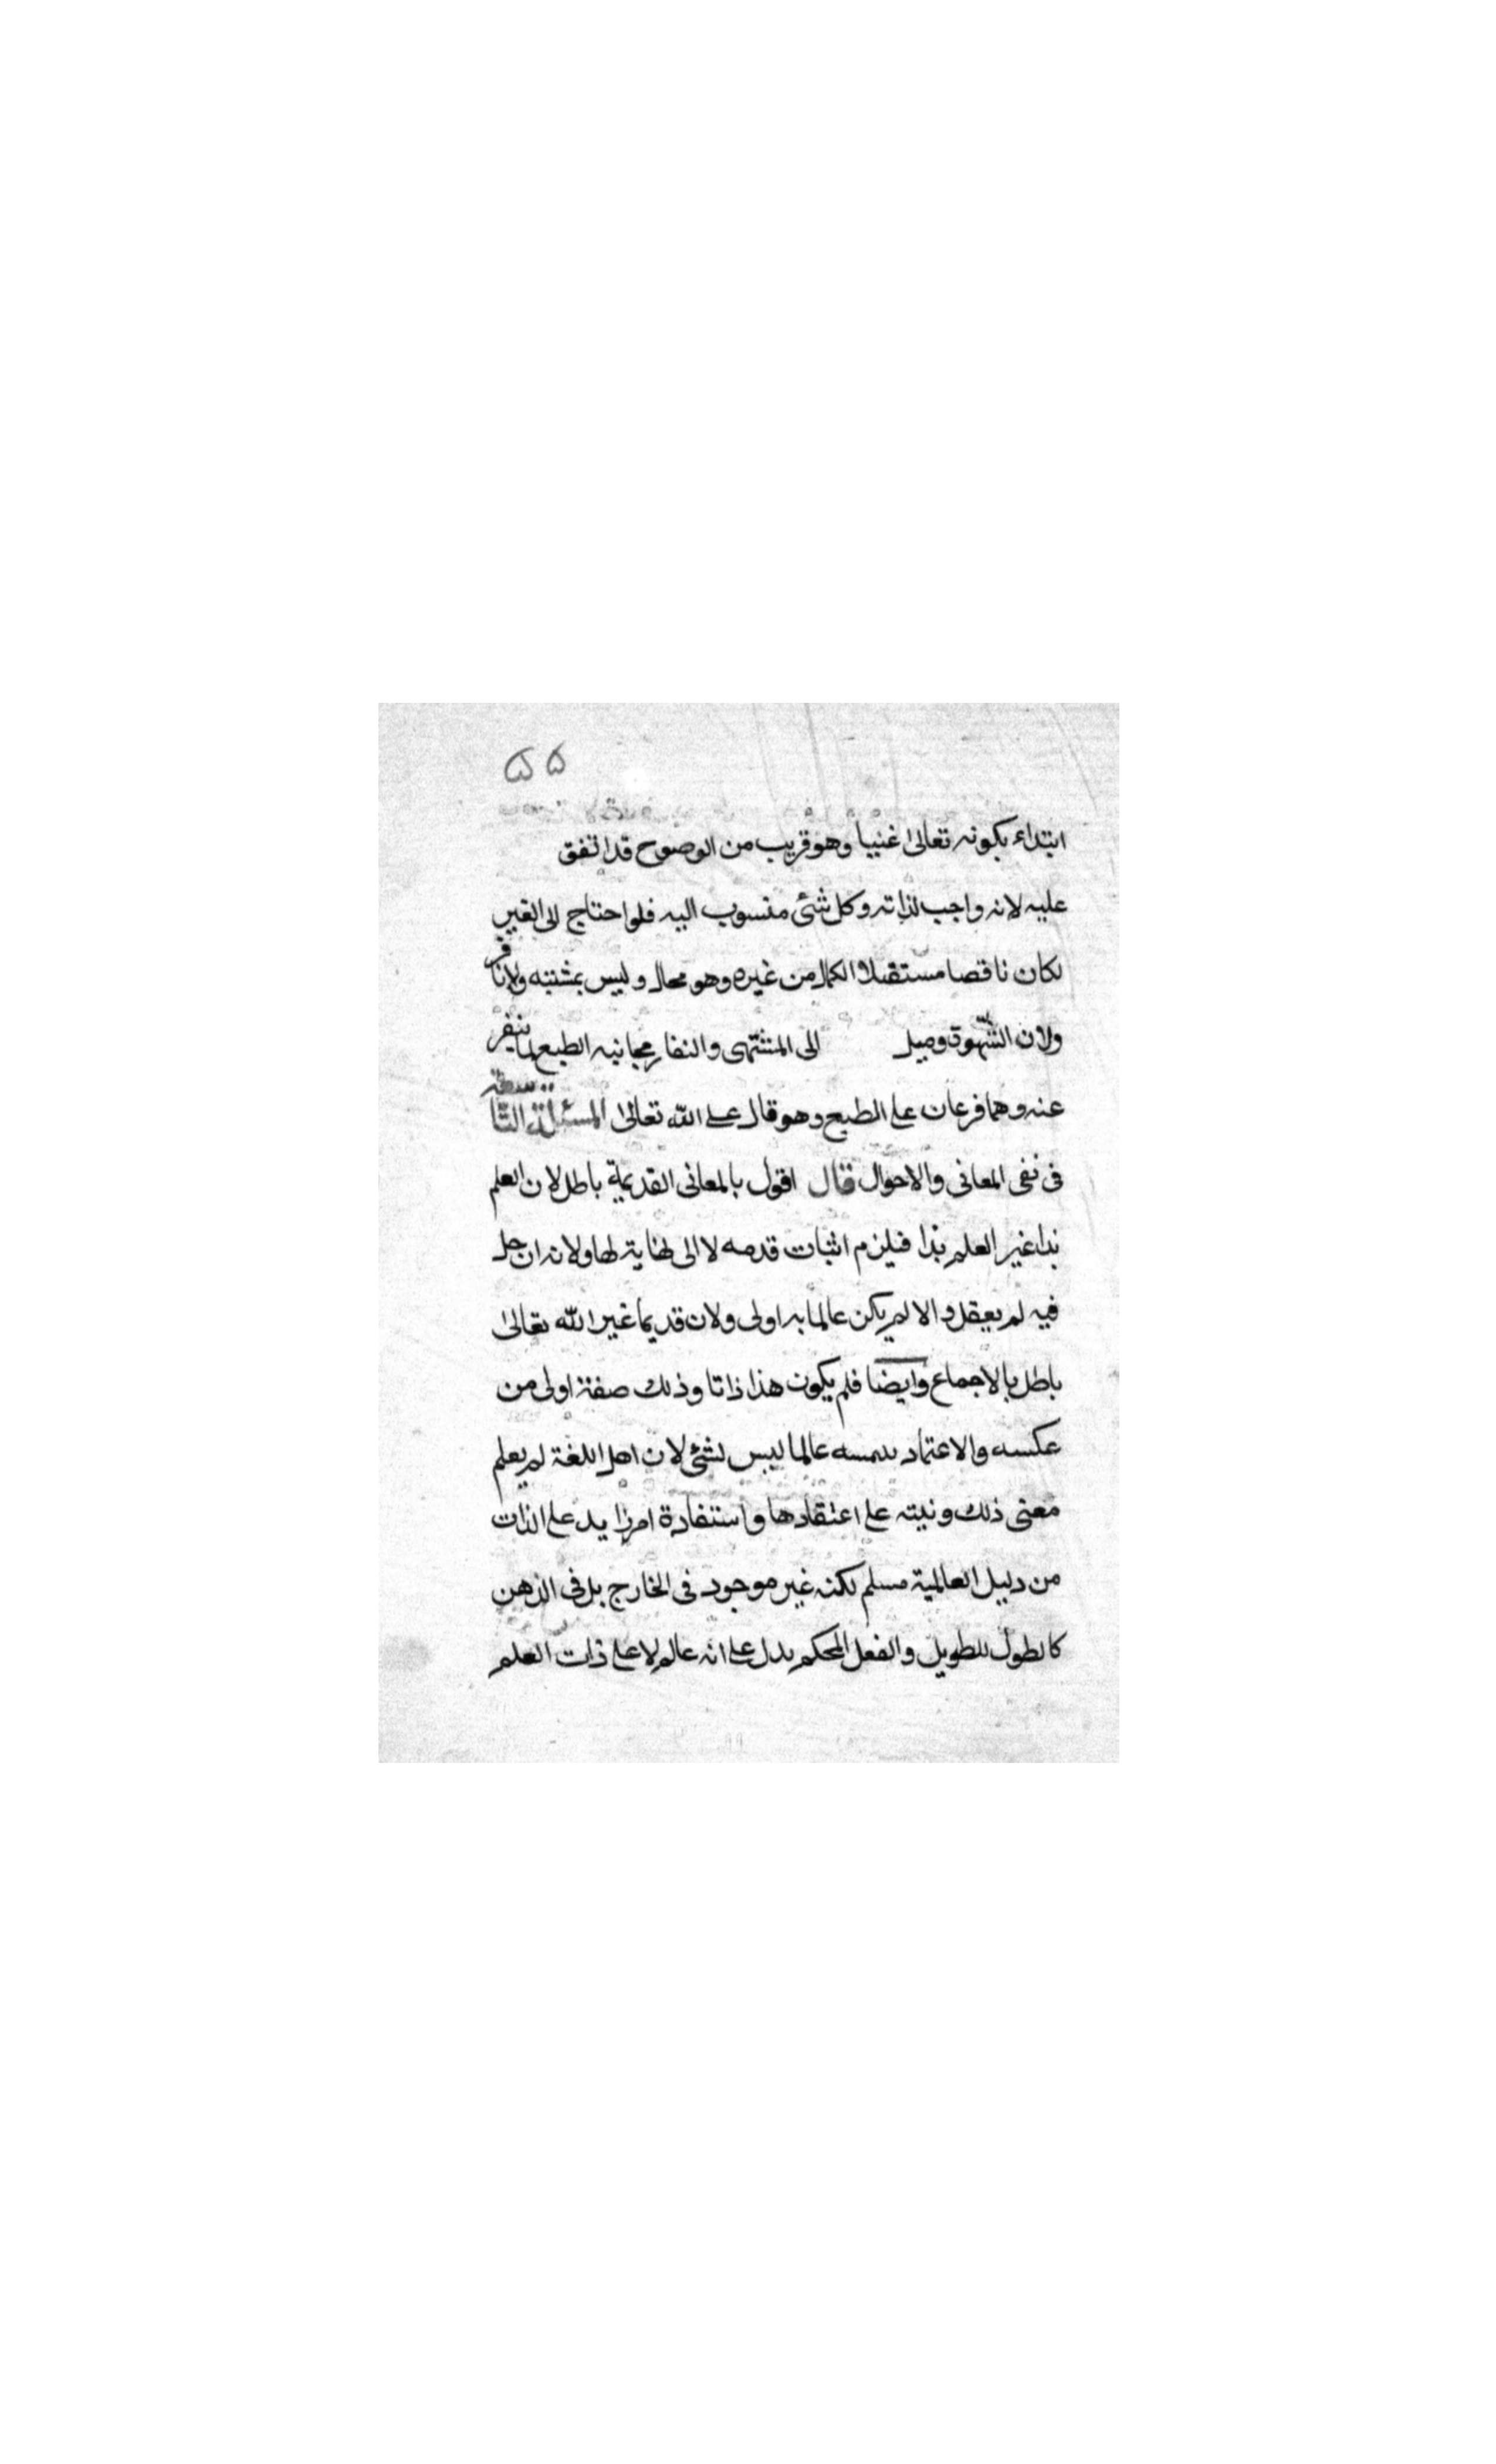 ٥٥
ابتداء بكونه تعالى غنيا وهو قريب من الوضوح قد اتفق
عليه لانه واجب لذاته وكل شئ منسوب اليه فلو احتاج الى الغير
لكان ناقصا مستقبلا الكمال من غيره وهو محال وليس بمشته ولا نافر
ولان الشهوة وميل الى المشتهى والنفار مجانبه الطبع لما ينفر
عنه وهما فرعان على الطبع وهو قال على الله تعالى المسئلة التاسعة
فى نفى المعانى والاحوال قال اقول بالمعانى القديمة باطل لان العلم
بذا غير العلم بذا فيلزم اثبات قدمه لا الى نهاية لها ولانه ان حل
فيه لم يعقل والا لم يكن عالما به اولى ولان قديما غير الله تعالى
باطل بالاجماع وايضا فلم يكون هذا ذاتا وذلك صفة اولى من
عكسه والاعتماد عالما ليس لشئ لان اهل اللغة لم يعلم
معنى ذلك ونيته على اعتقادها واستفادة امر زايد على الذات
من دليل العالمية مسلم لكنه غير موجود فى الخارج بل فى الذهن
كالطول للطويل والفعل المحكم يدل على انه عالم لا على ذات العلم